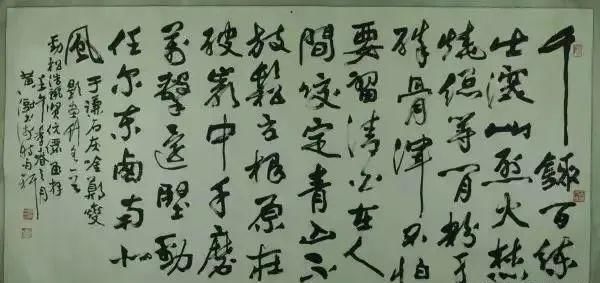 千錘百练
出深山烈火焚
燒但等闲粉身
碎骨渾不怕
要留清白在人
間咬定青山不
放鬆立根原在
破巖中千磨
萬擊還堅勁
任尔东西南北
風
于谦石灰吟鄭燮